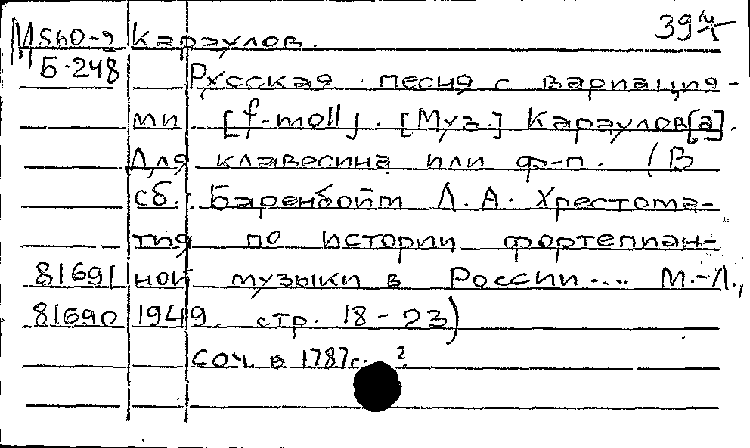 39
М Sh0-2 Караулов.
Б-248 Русская песня с вариация-
ми [f-moll]. [Муз.] Караулов[а].
Для клавесина или ф-п. (В
сб.: Баренбойм Л. А. Хрестома-
тия по истории фортепиан-
81691 ной музыки в России.... М.-Л.,
81690 1949. стр. 18-23)
соч. в 1787г. ?